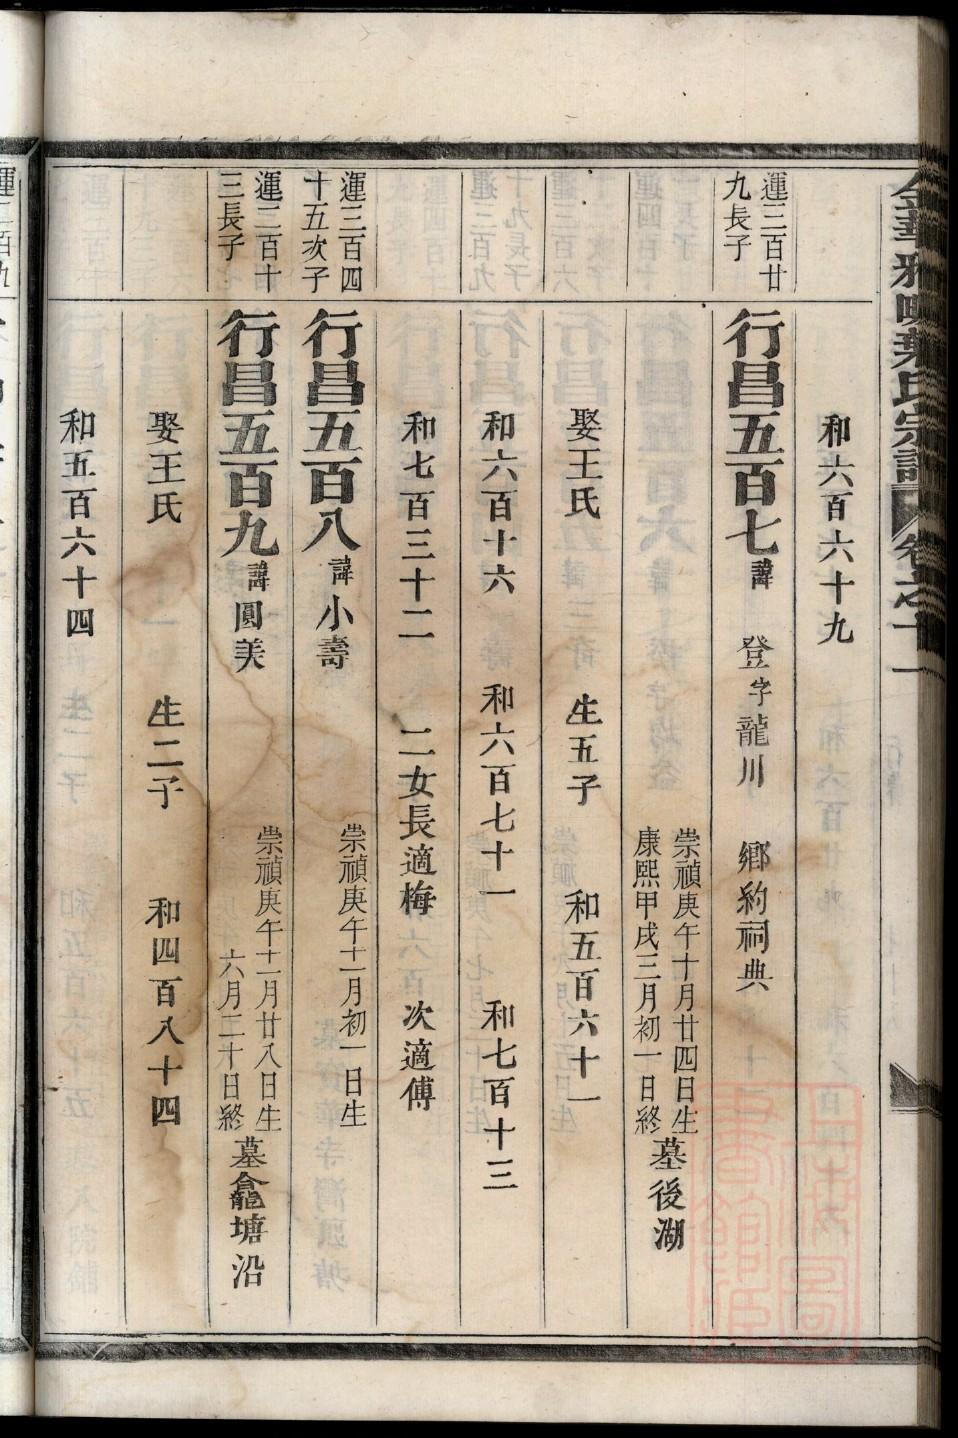 金華雅畈葉氏宗譜 卷之十一
和六百六十九
運三百廿九長子
行昌五百七 諱 登 字龍川 鄉約祠典
崇禎庚午十月廿四日生
康熙甲戌三月初一日終
墓後湖
娶王氏 生五子 和五百六十一
和六百十六 和六百七十一 和七百十三
和七百三十二 二女長適梅 次適傅
運三百四十五次子
行昌五百八 諱小壽 崇禎庚午十一月初一日生
運二百十三長子
行昌五百九 諱圓美 崇禎庚午十一月廿八日生
六月二十日終
墓龕塘沿
娶王氏 生二子 和四百八十四
和五百六十四